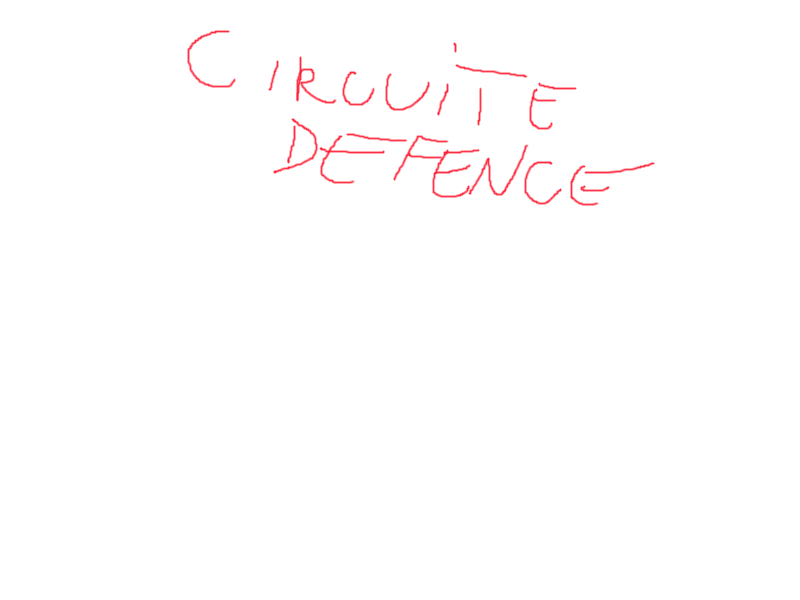 CIRCUITE
DEFENCE